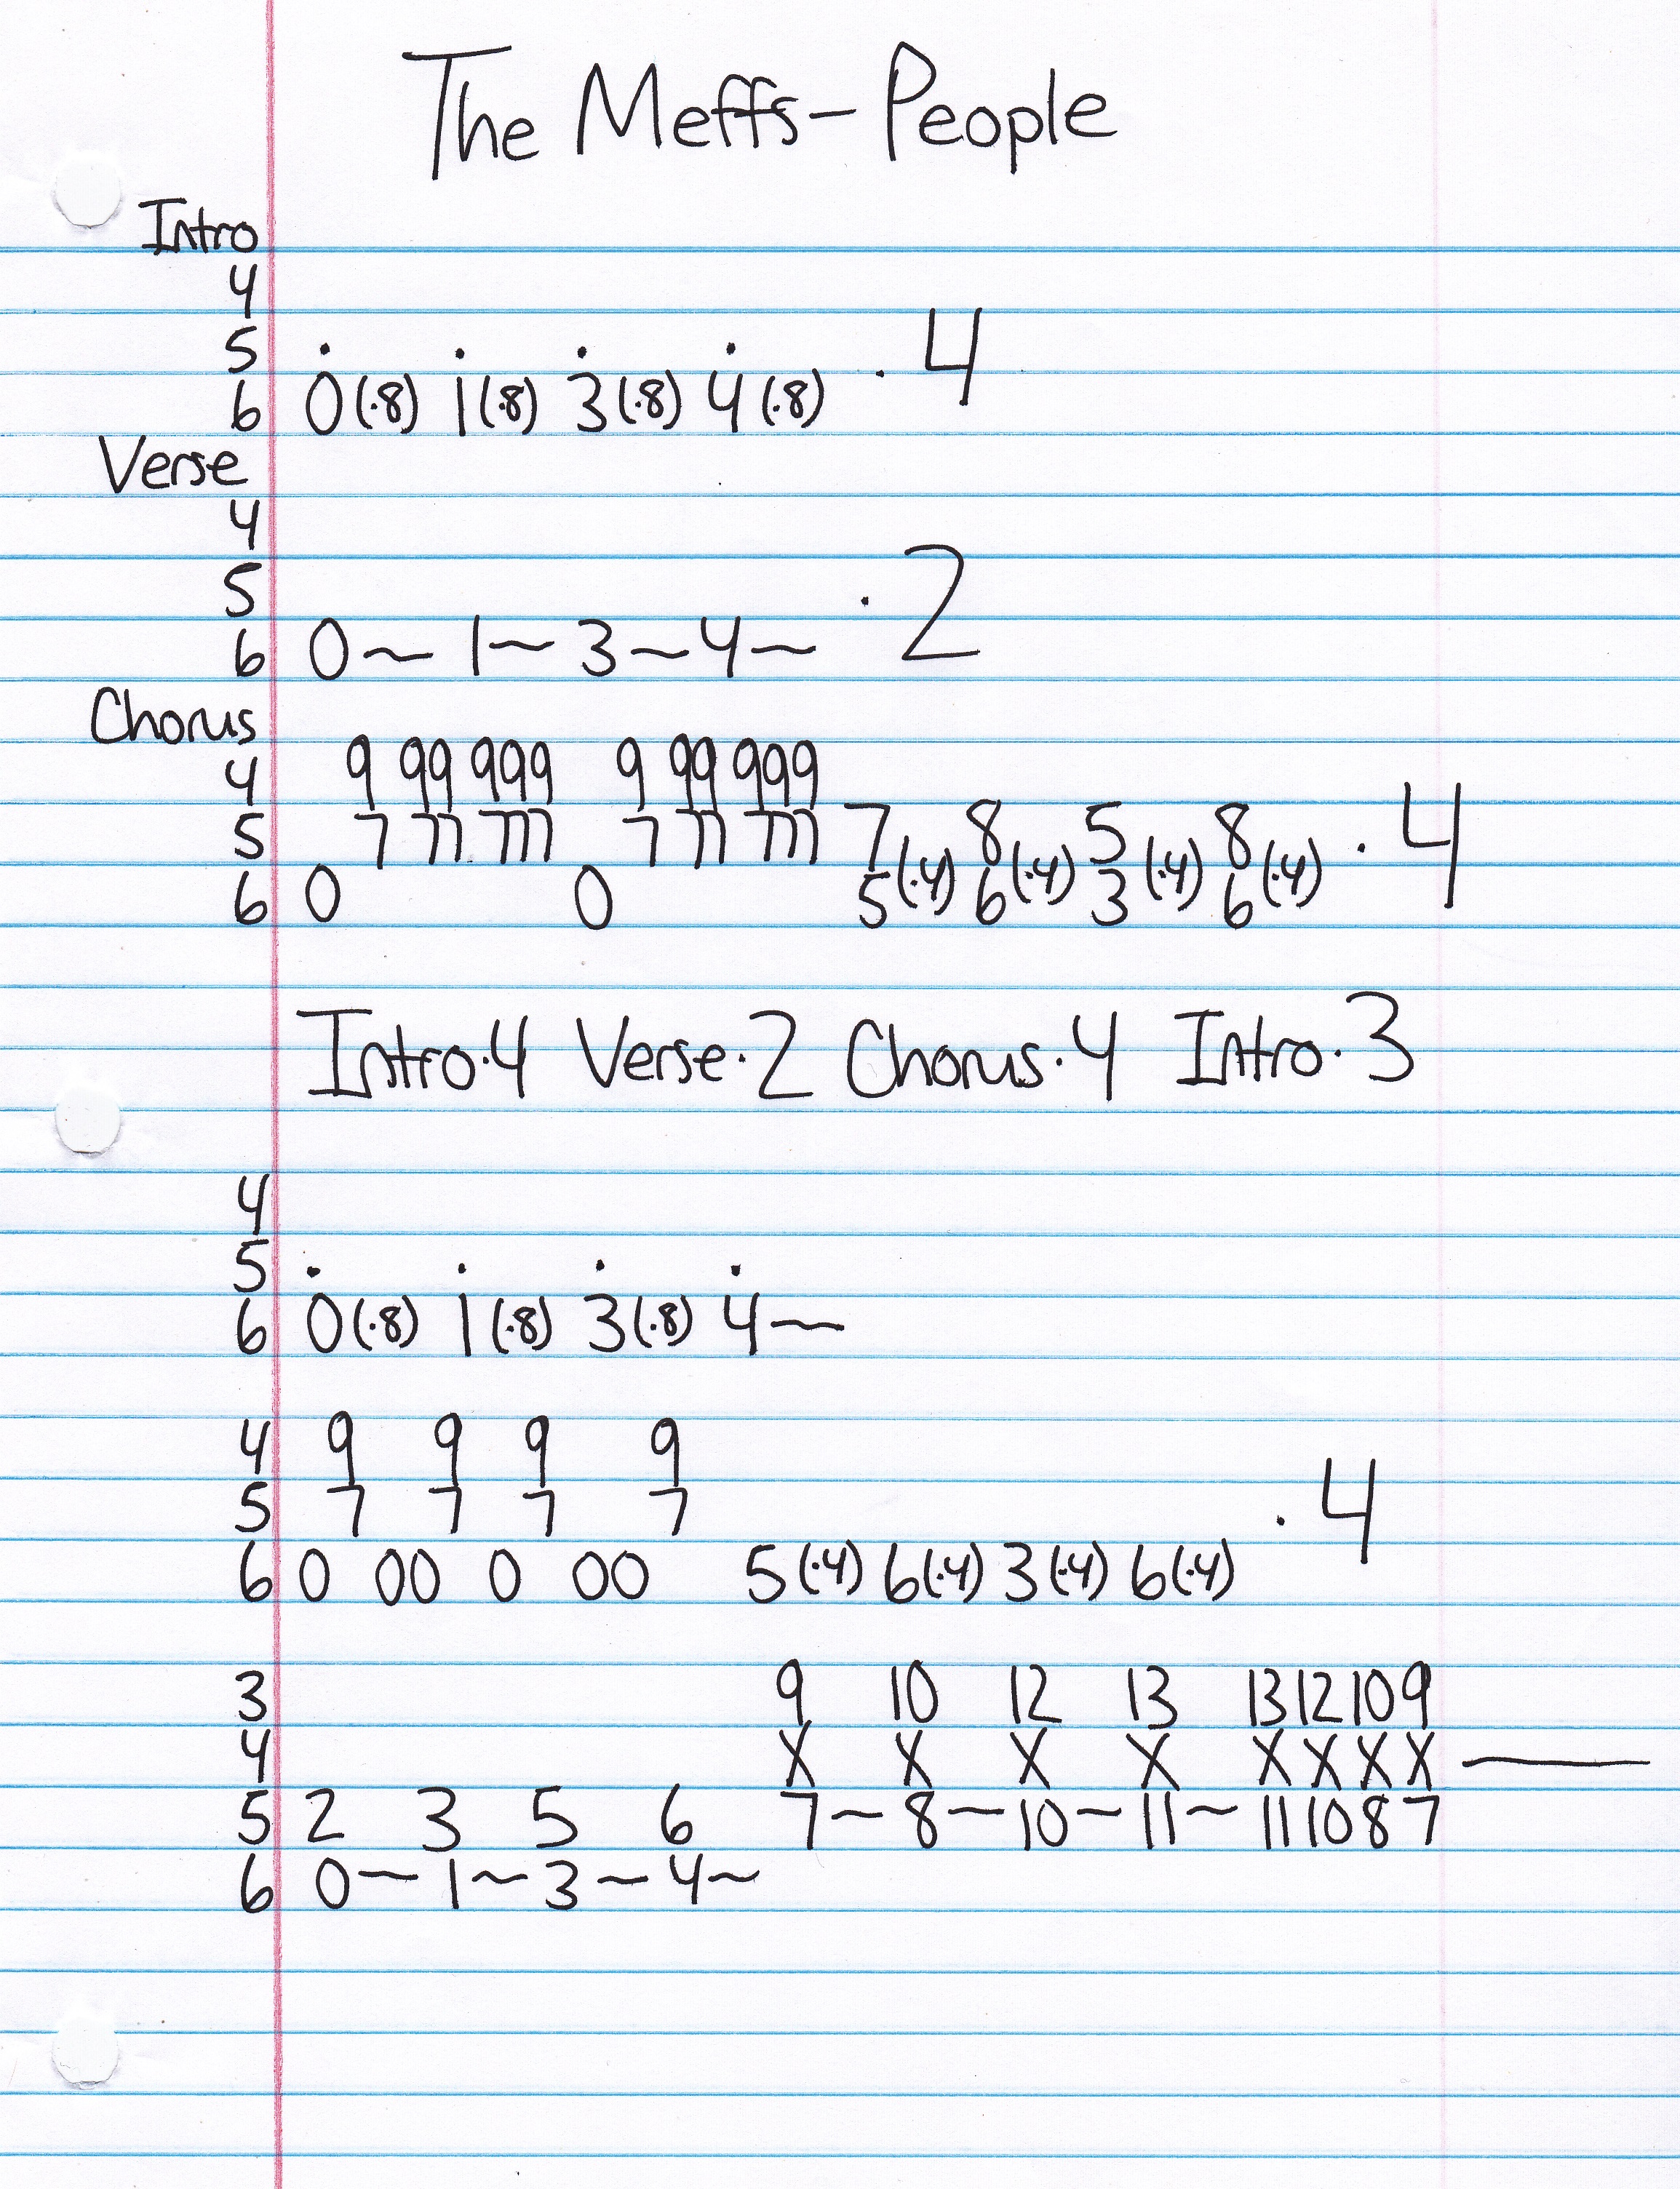 The Meffs - People
Intro
4
5 . . . . · 4
6 0(·8) 1(·8) 3(·8) 4(·8)
Verse
4
5 · 2
6 0~ 1~ 3~ 4~
Chorus
4 9 99 999 9 99 999
5 7 77 777 7 77 777 7 8 5 8 · 4
6 0 0 5(·4) 6(·4) 3(·4) 6(·4)
Intro·4 Verse·2 Chorus·4 Intro·3
4
5 . . . .
6 0(·8) 1(·8) 3(·8) 4~
4 9 9 9 9
5 7 7 7 7 · 4
6 0 00 0 00 5(·4) 6(·4) 3(·4) 6(·4)
3 9 10 12 13 13 12 10 9
4 X X X X X X X X —
5 2 3 5 6 7~ 8~ 10~ 11~ 11 10 8 7
6 0~ 1~ 3~ 4~